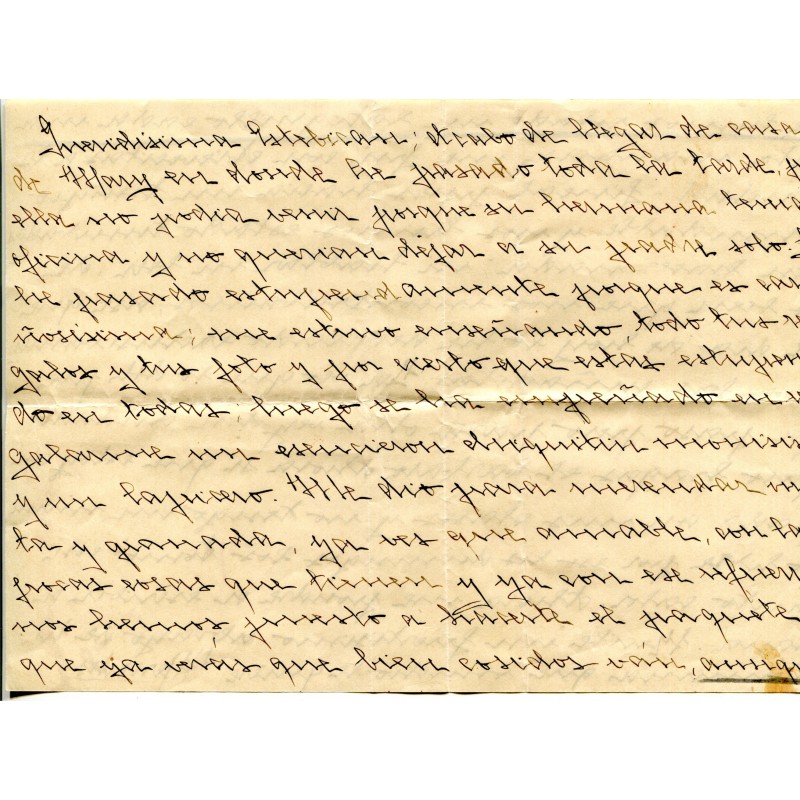 Queridisima Estebican; acabo de llegar de casa
de Mary en donde he pasado toda la tarde,
ella no podia venir porque su hermana tenia
oficina y no querian dejar a su padre solo.
he pasado estupendamente porque es cari
ñosisima; me estuvo enseñando, todo tus
galos y tus foto y por cierto que estas estupen
do en todas; luego se ha empeñado en
galarme un esencieron chiquitin monisi
y un lapicero. Me dio para merendar
ta y granada, ya ves que amable, con la
pocas cosas que tienen y ya con ese
nos hemos puesto a hacerte el paquete
que ya verás que bien cosidos ván, aunqu